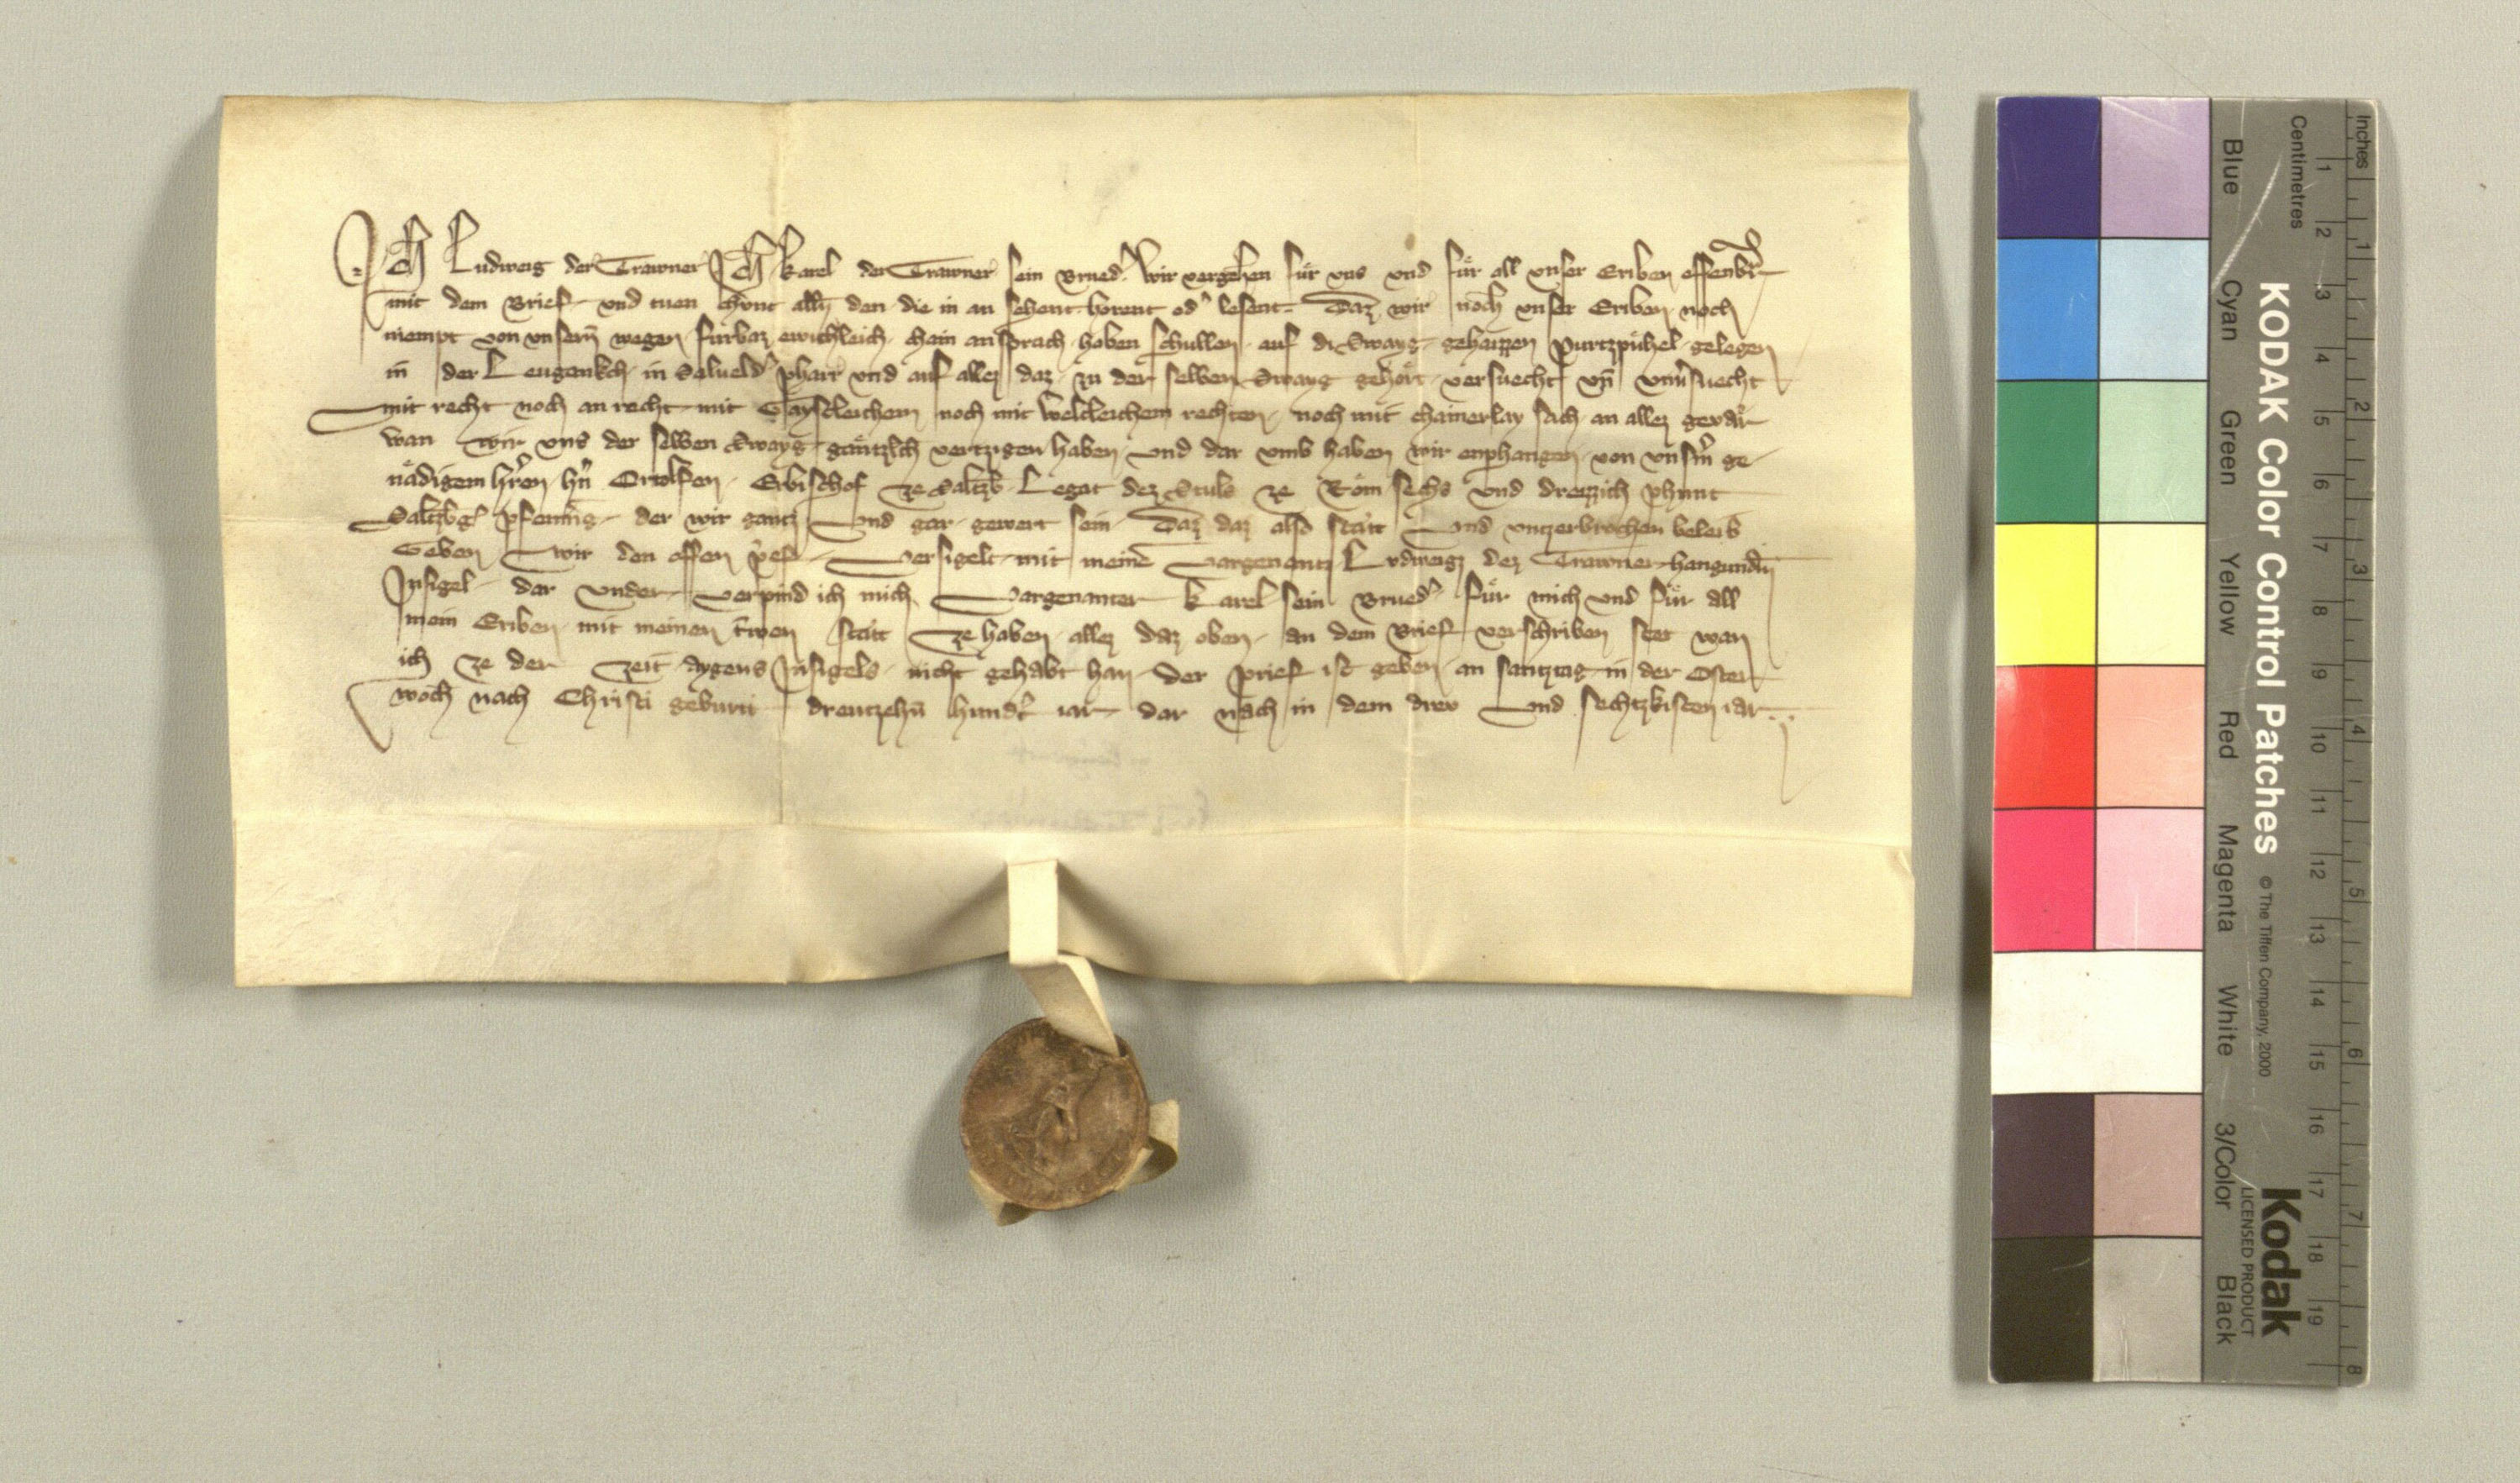 Ich Ludweig der Trawner Ich Karel der Trawner sein Brued' wir vergehen für vns vnd für all vnser Eriben offenb'
mit dem Brief vnd tuen chunt alln den die in an sehent horent od' lesent Daz wir noch vnser Eriben noch
niempt von vnsern wegen fürbaz ewichleich chain ansprach haben schullen auf di Swayg gehaizzen Purtzpühel gelegen
in der Leugenkch in Salueld' pharr vnd auf allez daz zu der selben Swayg gehört versuecht vn vnu'suecht
mit recht noch an recht mit Gaystleichem noch mit weltleichem rechten noch mit chainerlay sach an allez geuär
wan wir vns der selben Swayg gäntzlich vertzigen haben vnd dar vmb haben wir enphangen von vnsm ge
nädigem h'ren h'n Ortolfen Erbischof ze Saltzb Legat dez Stuls ze Rom sechs vnd dreizzich phunt
Saltzbg' pfenning der wir gantz vnd gar gewert sein Daz daz also stät vnd vntzerbrochen beleib
Geben wir den offen Versigelt mit meine Vorgenantz Ludweigz dez Trawner hangundn
Insigel dar vnder verpind ich mich Vorgenanter Karel sein Brued' für mich vnd für all
mein Eriben mit meinen trwen stät ze haben allez daz oben an dem Brief verschriben stet wan
ich ze der zeit aygens Insigels nicht gehabt han Der prief ist geben an santztag in der Oster
woch nach Christi geburt dreutzehn hund't iar dar nach in dem drew vnd sechtzkisten iar
KODAK Color Control Patches © The Tiffen Company, 2000
Kodak
LICENSED PRODUCT
Blue Cyan Green Yellow Red Magenta White 3/Color Black
Inches 1 2 3 4 5 6 7 8
Centimetres 1 2 3 4 5 6 7 8 9 10 11 12 13 14 15 16 17 18 19